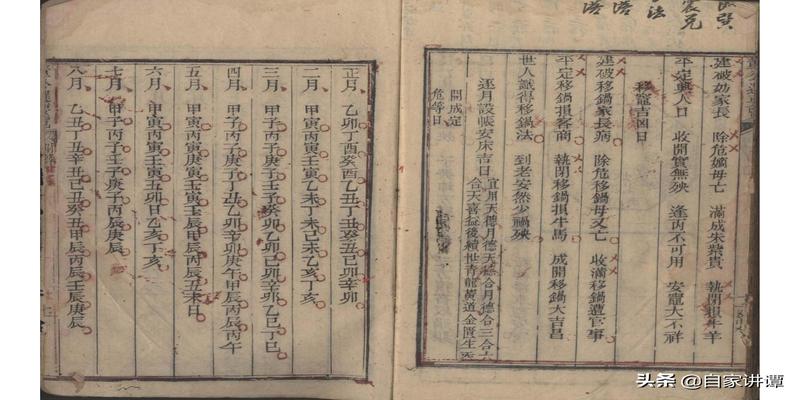 建破妨家長 除危嫡母亡 滿成朱紫貴 執閉損牛羊
平定興人口 收開實無殃 逢丙不可用 安竈大不祥
移竈吉凶日
建破移鍋家長病 除危移鍋母又亡 收滿移鍋遭官事
平定移鍋損客商 執閉移鍋損牛馬 成開移鍋大吉昌
世人識得移鍋法 到老安然少禍殃
逐月設帳安床吉日 宜用天德月德天德合月德合三合六
合天喜益後續世青龍黃道金匱生炁
開成定
危等日
正月 乙卯丁酉癸酉乙丑丁丑癸丑己卯辛卯
二月 甲寅丙寅壬寅乙未丁未己未乙亥丁亥
三月 甲子丙子庚子壬子癸卯乙卯己卯辛卯乙巳丁巳
四月 甲子丙子庚子丁丑乙卯辛卯庚午甲辰丙辰丙午
五月 甲寅丙寅壬寅壬辰甲辰丙辰丑未日
六月 甲寅丙寅壬寅丑卯日乙亥丁亥
七月 甲子丙子壬子庚子丙辰庚辰
八月 乙丑丁丑辛丑己丑癸丑甲辰丙辰壬辰庚辰
頭条 @自家讲谭